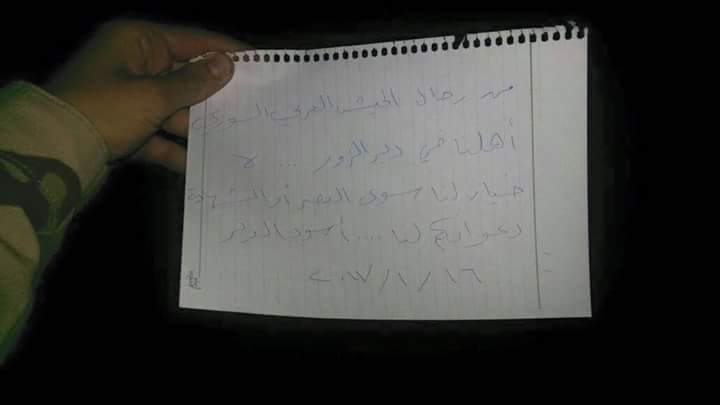 من رجال الجيش العربي السوري
أهلنا في دير الزور ... لا
خيار لنا سوى النصر أو الشهادة
دعواتكم لنا ... أسود الدير
٢٠١٧/١/١٦